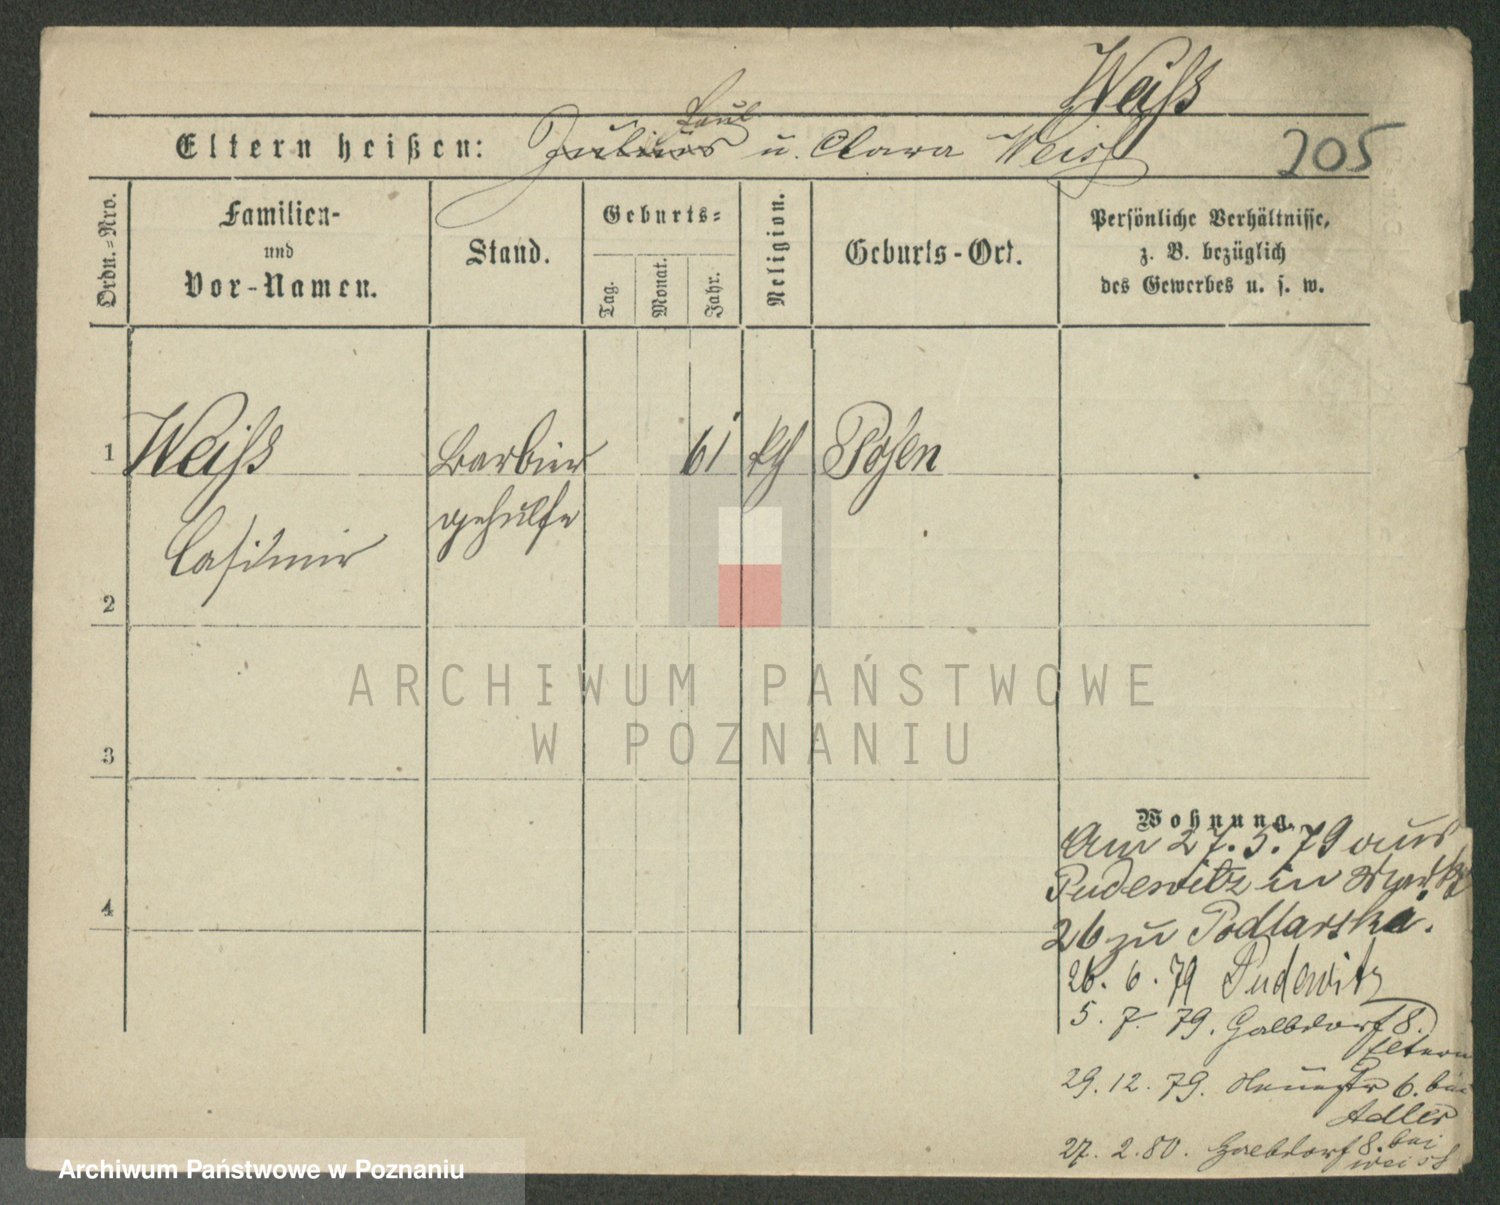 Weiß
Paul
Eltern heißen: Julius u. Clara Weiss
205
Ordn.=Nro.
Familien-
und
Vor-Namen.
Stand.
Geburts=
Tag.
Monat.
Jahr.
Religion.
Geburts-Ort.
Persönliche Verhältnisse,
z. B. bezüglich
des Gewerbes u. s. w.
1 Weiß Barbier 61 kth Posen
gehülfe
Casimir
2
3
4
ARCHIWUM PAŃSTWOWE
W POZNANIU
Wohnung.
Am 27.5.79 aus
Pudewitz in
26 zu Podlarski.
26. 6. 79 Pudewitz
5. 7. 79. Halbdorf 8.
Eltern
29. 12. 79. Neuestr 6. bei
Adler
27. 2. 80. Halbdorf 8. bei
Weiss
Archiwum Państwowe w Poznaniu